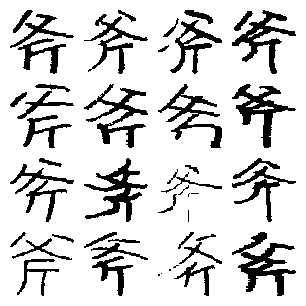 斧斧斧斧
斧斧斧斧
斧斧斧斧
斧斧斧斧